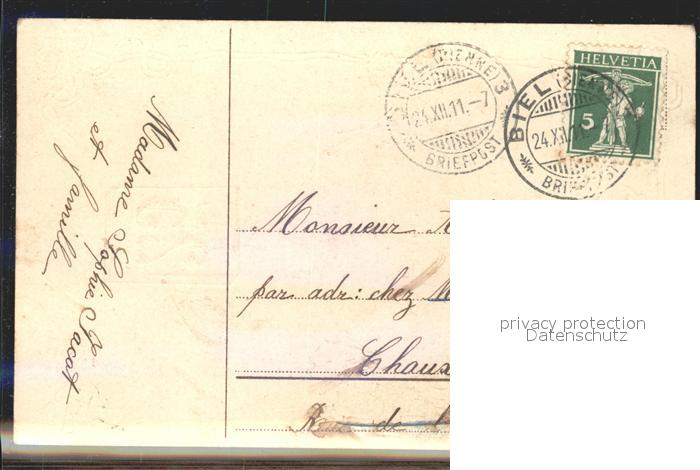 Madame Sophie Jacot
et famille
BIEL (BIENNE) 3
24.XII.11.–7
BRIEFPOST
BIEL (BIENNE)
24.XII.
BRIEFPOST
HELVETIA
5
Monsieur
par adr: chez
Chaux
de
privacy protection
Datenschutz